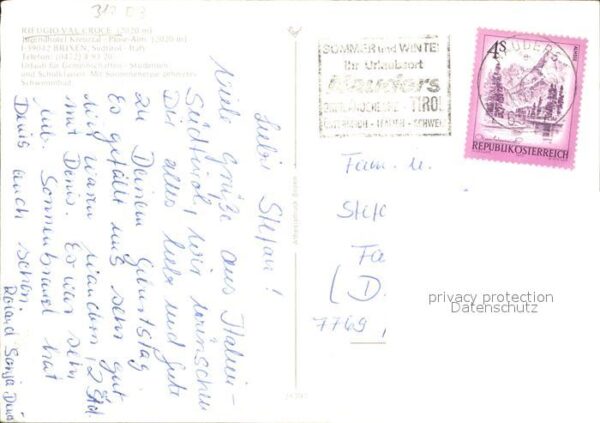 312 D3
RIFUGIO VAL CROCE (2020 m)
Jugendhotel Kreuztal - Plose-Alm (2020 m)
I-39042 BRIXEN, Südtirol - Italy
Telefon: (0472) 4 93 20
Urlaub für Gemeinschaften - Studienen
und Schulklassen. Mit Sonnenenergie beheiztes
Schwimmbad
Lieber Stefan!
Viele Grüße aus Italien-
Südtirol, wir wünschen
Dir alles Liebe und Gute
zu Deinem Geburtstag.
Es gefällt uns sehr gut
Wir waren wandern, 2 Std.
mit Denis. Es war sehr
Sonnenbrand hat
Denis auch schon.
Sonja Denis
SOMMER und WINTER
Ihr Urlaubsort
Nauders
TIROL
ÖSTERREICH - ITALIEN - SCHWEIZ
NAUDERS
4S
REPUBLIK ÖSTERREICH
Fam. u.
Stef
Fa
(D.
7769,
privacy protection
Datenschutz